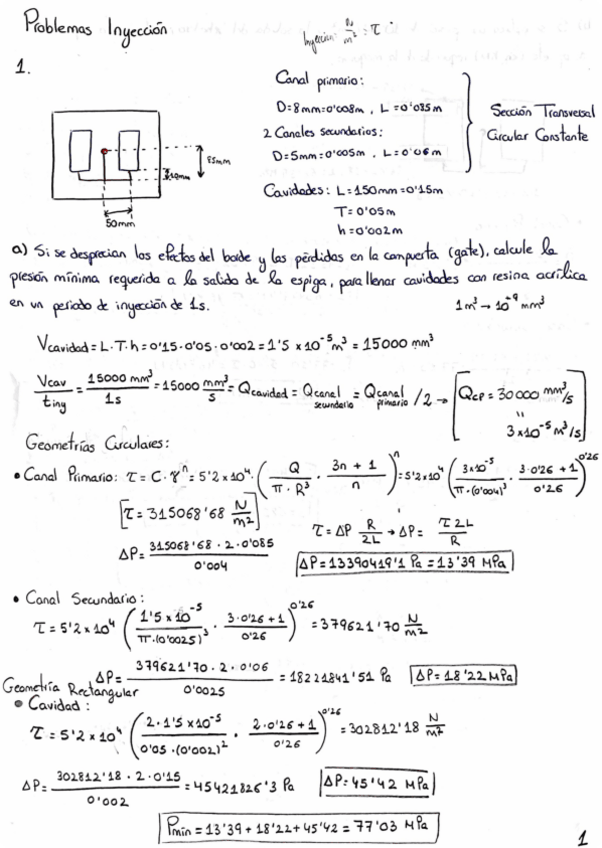 Problemas Inyección
Inyección: Pa/m² = τ
1.
Canal primario:
D=8mm=0'008m, L=0'085m
2 Canales secundarios:
D=5mm=0'005m, L=0'06m
Sección Transversal
Circular Constante
Cavidades: L=150mm=0'15m
T=0'05m
h=0'002m
85mm
10mm
50mm
a) Si se desprecian los efectos del borde y las pérdidas en la compuerta (gate), calcule la
presión mínima requerida a la salida de la espiga, para llenar cavidades con resina acrílica
en un periodo de inyección de 1s.
1m³ → 10⁻⁹ mm³
Vcavidad = L·T·h = 0'15·0'05·0'002 = 1'5 x10⁻⁵m³ = 15000 mm³
Vcav/tiny = 15000 mm³/1s = 15000 mm³/s = Qcavidad = Qcanal secundario = Qcanal primario /2 → [QCP = 30000 mm³/s
"
3x10⁻⁵ m³/s]
Geometrías Circulares:
• Canal Primario: τ = C·γⁿ = 5'2x10⁴·(Q/π·R³ · 3n+1/n)ⁿ = 5'2x10⁴ (3x10⁻⁵/π·(0'004)³ · 3·0'26+1/0'26)^0'26
[τ = 315068'68 N/m²]
τ = ΔP R/2L → ΔP = τ2L/R
ΔP = 315068'68·2·0'085/0'004
ΔP = 13390419'1 Pa = 13'39 MPa
• Canal Secundario:
τ = 5'2x10⁴ (1'5x10⁻⁵/π·(0'0025)³ · 3·0'26+1/0'26)^0'26 = 379621'70 N/m²
ΔP = 379621'70·2·0'06/0'0025 = 18221841'51 Pa
ΔP = 18'22 MPa
Geometría Rectangular
• Cavidad:
τ = 5'2x10⁴ (2·1'5x10⁻⁵/0'05·(0'002)² · 2·0'26+1/0'26)^0'26 = 302812'18 N/m²
ΔP = 302812'18·2·0'15/0'002 = 45421826'3 Pa
ΔP = 45'42 MPa
Pmin = 13'39+18'22+45'42 = 77'03 MPa
1